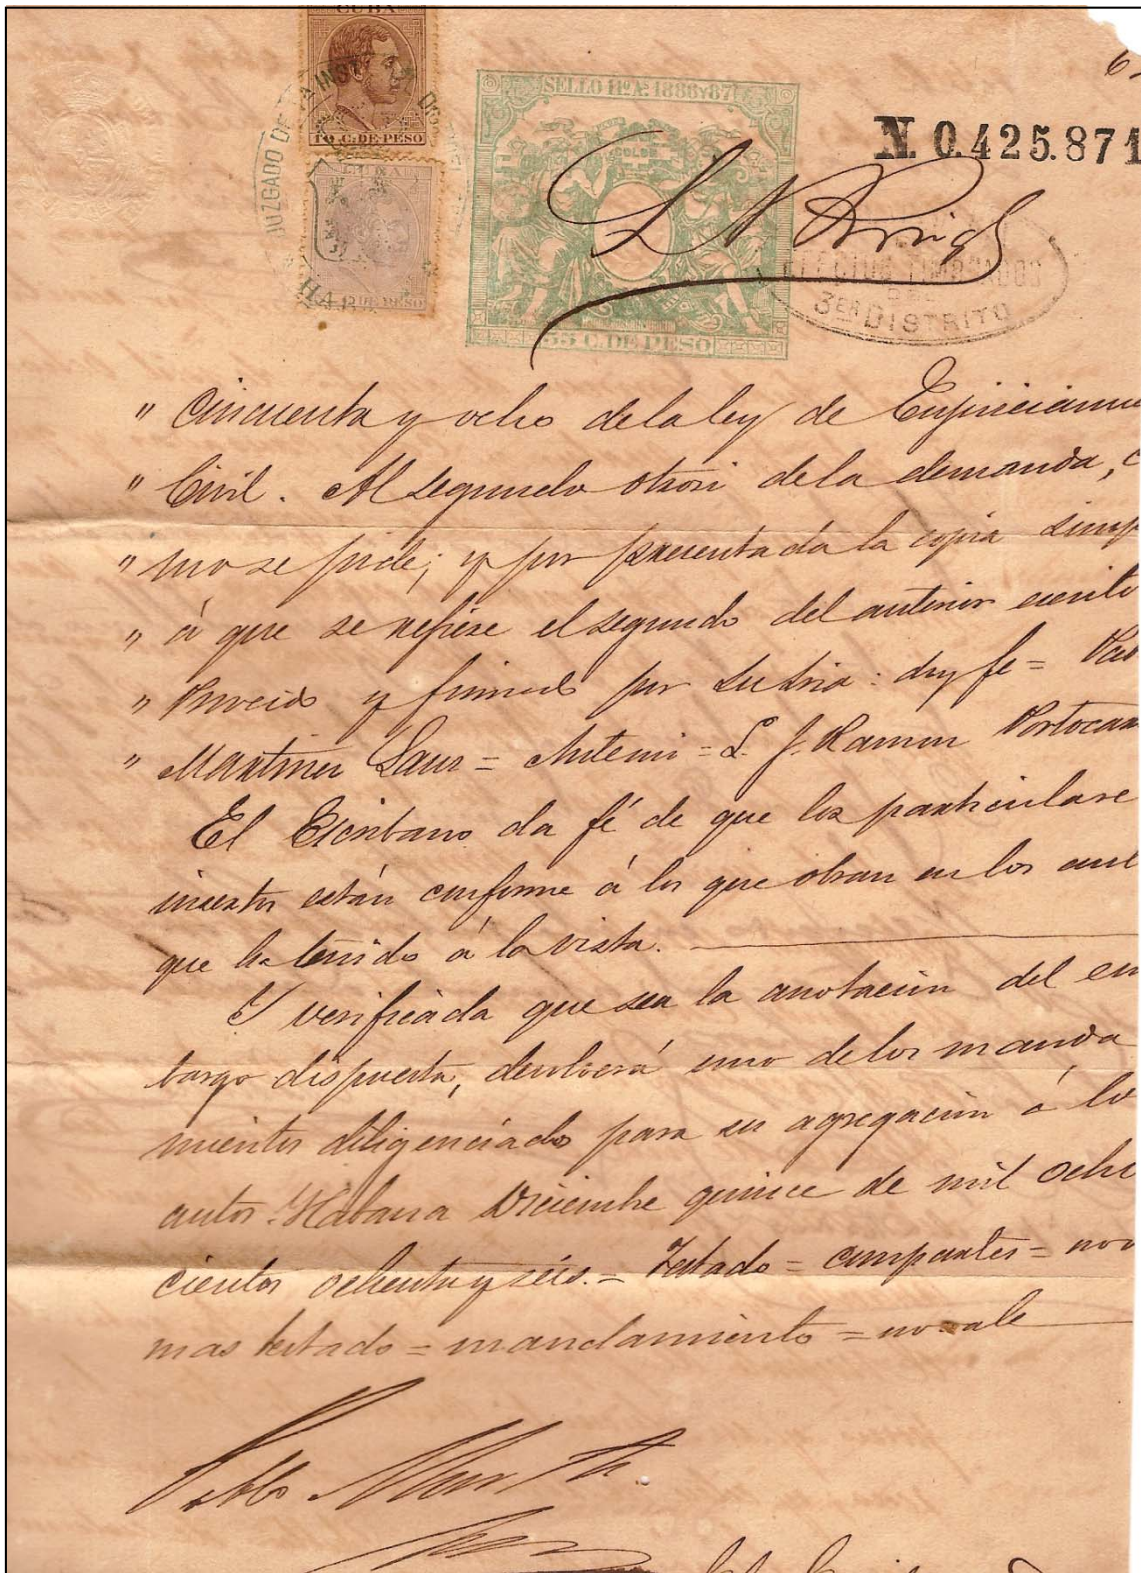 CUBA
10 C. DE PESO
JUZGADO DE
C. DE PESO
SELLO 11º A: 1886 Y 87
35 C. DE PESO
N. 0.425.871
3ER DISTRITO
" Cincuenta y ocho de la ley de Enjuiciamie
" Civil. Al segundo otrosi de la demanda, c
" mo se pide; y por presentada la copia simp
" á que se refiere el segundo del anterior escrito
" Proveido y firmado por su Sria: doy fe =
" Martinez Sanz = Antemi = L. J. Ramon Portocar
El Escribano da fé de que los particulare
insertos están conforme á los que obran en los aut
que ha tenido á la vista.
Y verificada que sea la anotacion del em
bargo dispuesta, devolverá uno de los manda
mientos diligenciado para su agregación á lo
autos. Habana Diciembre quince de mil ocho
cientos ochenta y séis. = Testado = = no v
mas testado = mandamiento = no vale
Pablo Mart